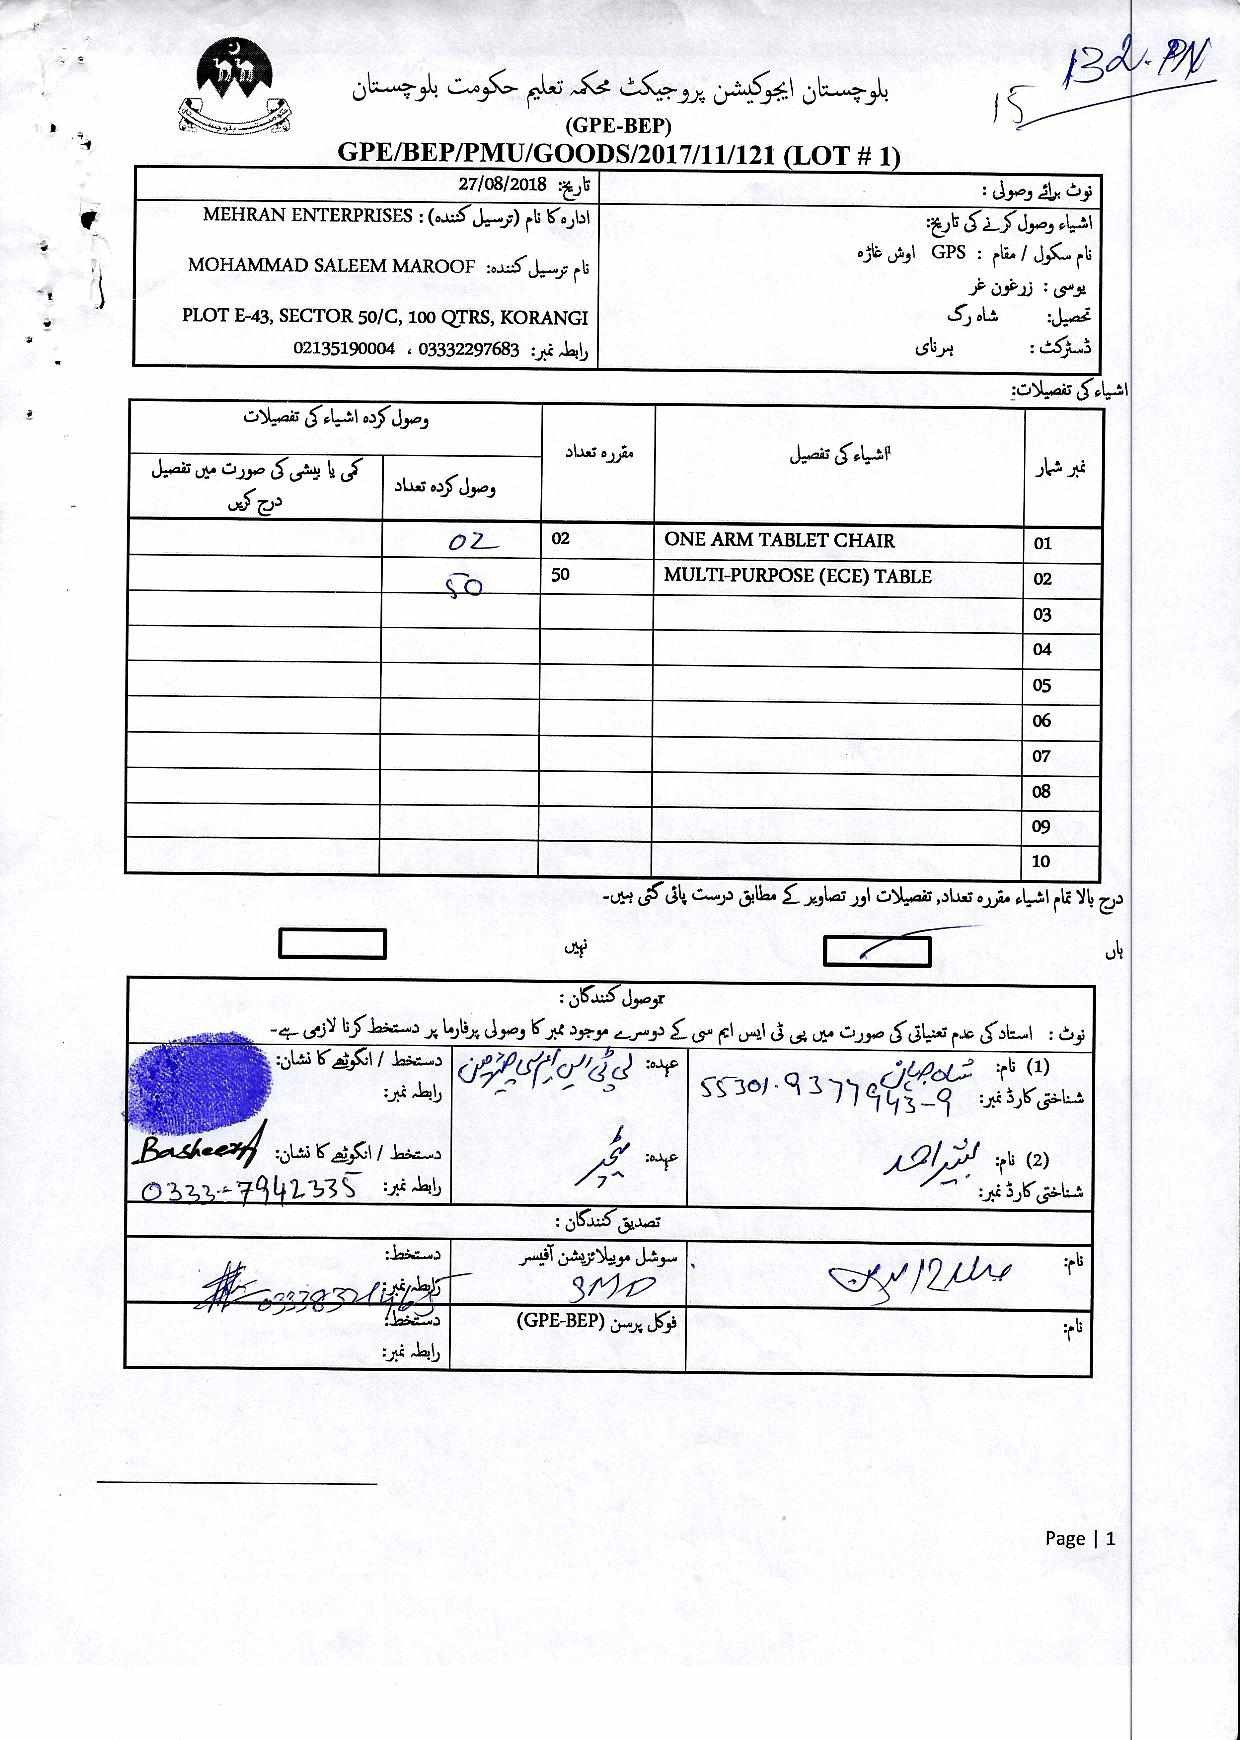 132-PN
15
بلوچستان ایجوکیشن پروجیکٹ محکمہ تعلیم حکومت بلوچستان
(GPE-BEP)
GPE/BEP/PMU/GOODS/2017/11/121 (LOT # 1)
نوٹ برائے وصولی :
تاریخ: 27/08/2018
اشیاء وصول کرنے کی تاریخ:
نام سکول / مقام : GPS اوش غاڑہ
یوسی : زرغون غر
تحصیل: شاہ رگ
ڈسٹرکٹ : ہرنای
ادارہ کا نام (ترسیل کنندہ) : MEHRAN ENTERPRISES
نام ترسیل کنندہ: MOHAMMAD SALEEM MAROOF
PLOT E-43, SECTOR 50/C, 100 QTRS, KORANGI
رابطہ نمبر: 03332297683 ، 02135190004
اشیاء کی تفصیلات:
نمبر شمار
اشیاء کی تفصیل
مقررہ تعداد
وصول کردہ اشیاء کی تفصیلات
وصول کردہ تعداد
کمی یا بیشی کی صورت میں تفصیل درج کریں
01 ONE ARM TABLET CHAIR 02 02
02 MULTI-PURPOSE (ECE) TABLE 50 50
03
04
05
06
07
08
09
10
درج بالا تمام اشیاء مقررہ تعداد, تفصیلات اور تصاویر کے مطابق درست پائی گئی ہیں۔
ہاں
نہیں
وصول کنندگان :
نوٹ : استاد کی عدم تعیناتی کی صورت میں پی ٹی ایس ایم سی کے دوسرے موجود ممبر کا وصولی پرفارما پر دستخط کرنا لازمی ہے۔
(1) نام: شاہ جہان
شناختی کارڈ نمبر: 55301-9377943-9
عہدہ: پی ٹی ایس ایم سی چئرمین
دستخط / انگوٹھے کا نشان:
رابطہ نمبر:
(2) نام: بشیر احمد
شناختی کارڈ نمبر:
عہدہ: ٹیچر
دستخط / انگوٹھے کا نشان: Basheer A
رابطہ نمبر: 0333-7942335
تصدیق کنندگان :
نام:
سوشل موبیلائزیشن آفیسر
SMO
دستخط:
رابطہ نمبر:
نام:
فوکل پرسن (GPE-BEP)
دستخط:
رابطہ نمبر:
Page | 1